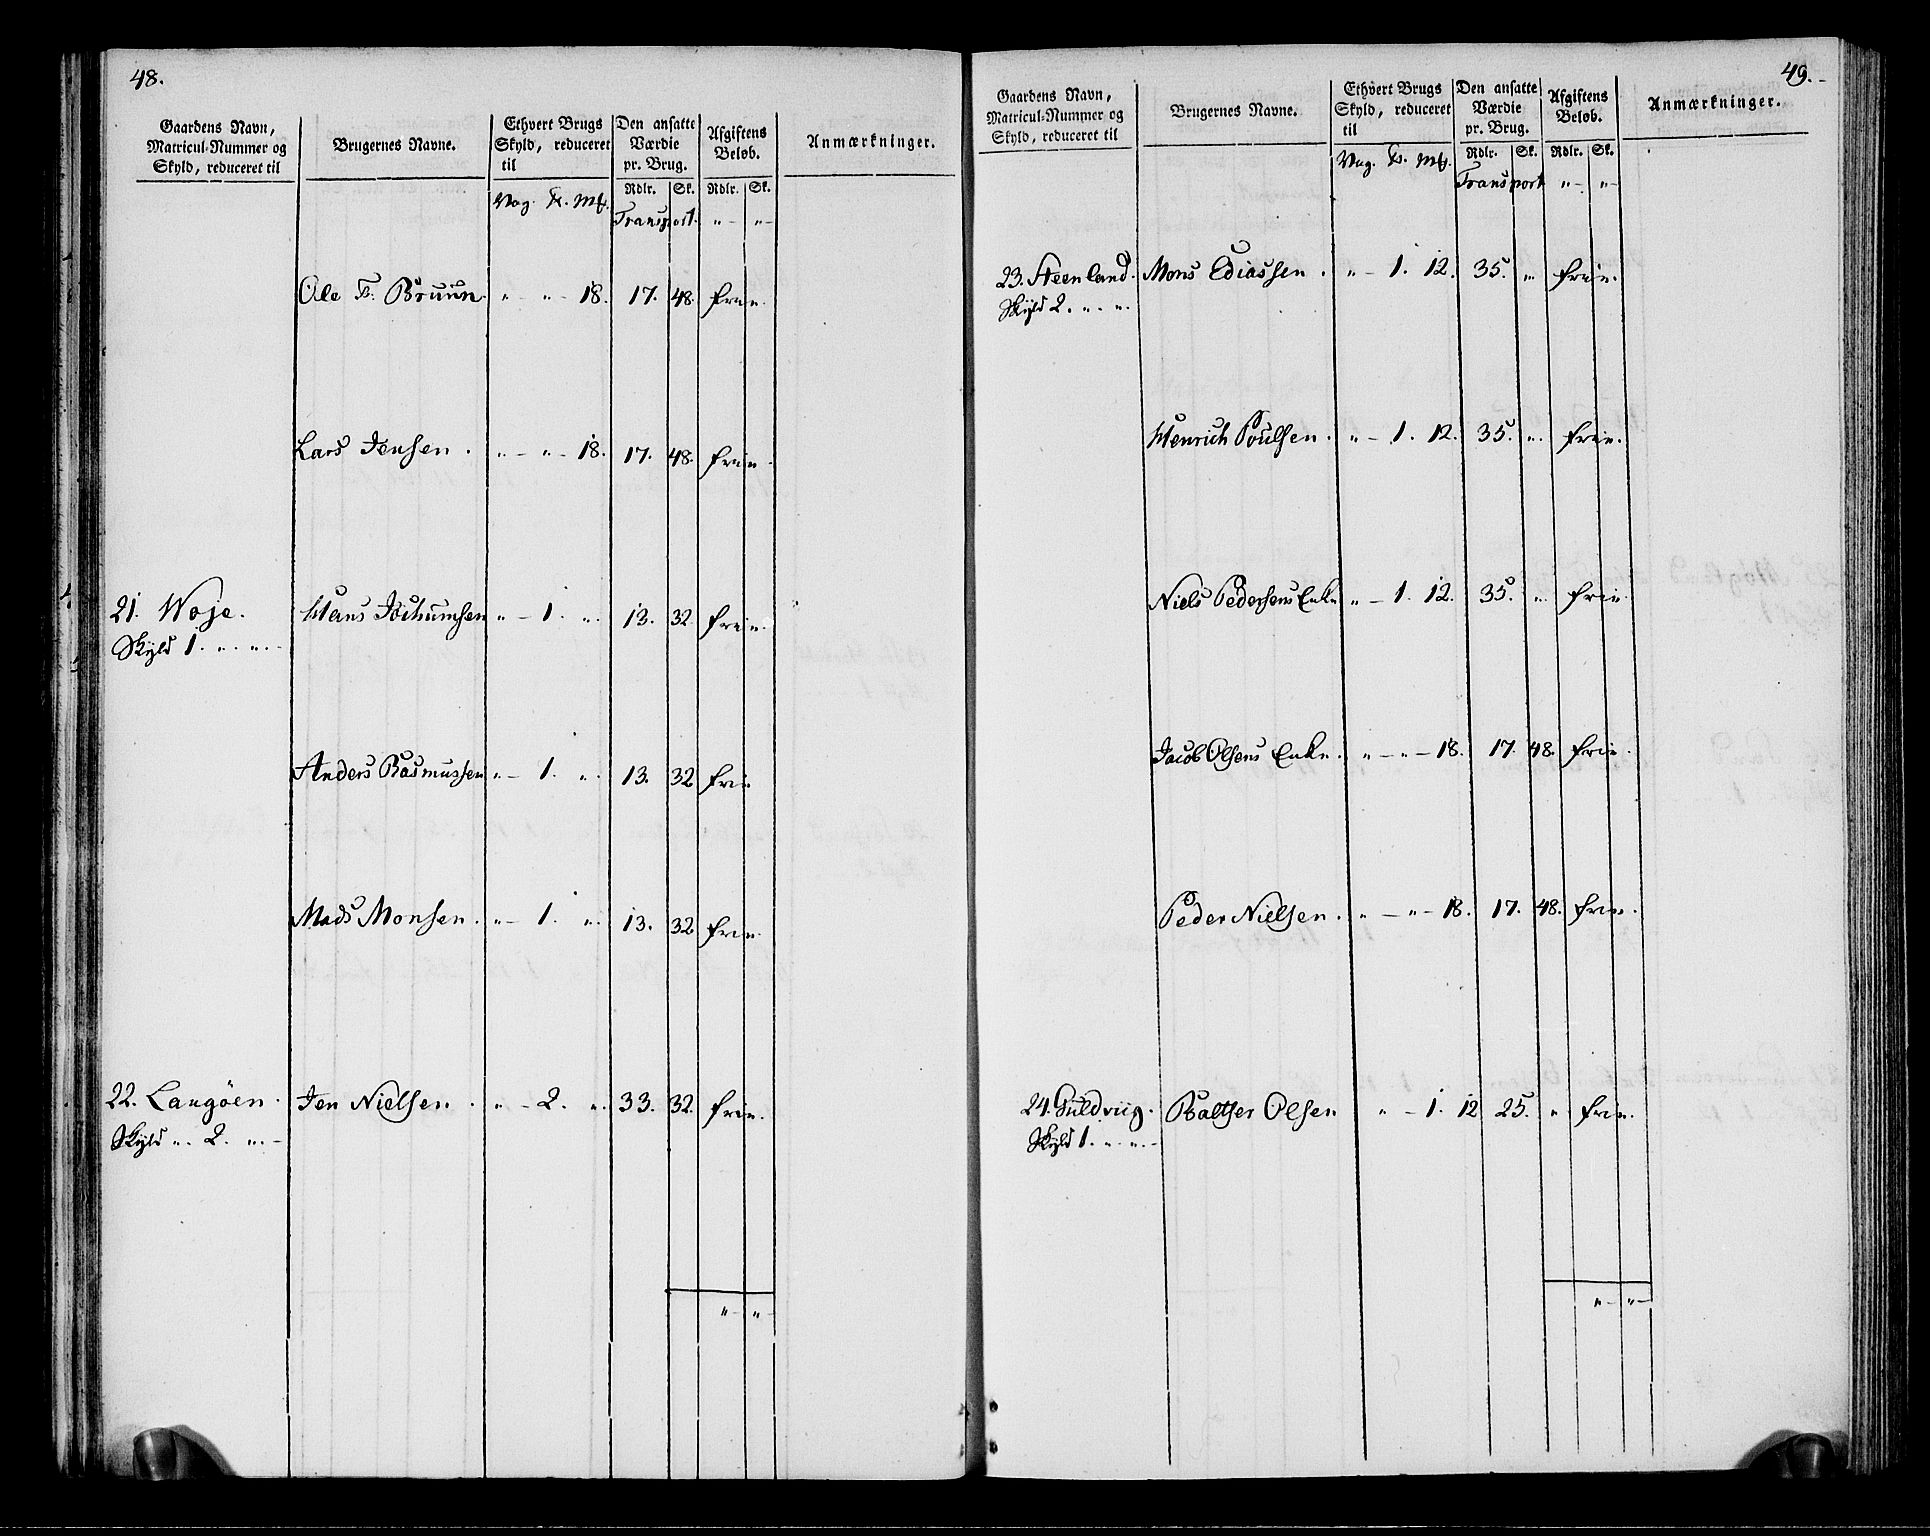 48.
Gaardens Navn, Matricul-Nummer og Skyld, reduceret til
Brugernes Navne.
Ethvert Brugs Skyld, reduceret til
Den ansatte Værdie pr. Brug.
Afgiftens Beløb.
Anmærkninger.
Vog. Mk.
Rdlr. Sk. Rdlr. Sk.
Transport. „ – „ –
Ole Bruun. „ – „ – 18. 17. 48. frie.
Lars Jensen. „ – „ – 18. 17. 48. frie.
21. Woje. Hans Jochumsen „ – 1. „. 13. 32. frie.
Skyld 1. „. „. –
Anders Rasmussen „ – 1. „. 13. 32. frie
Mads Monsen. „ – 1. „. 13. 32. frie.
22. Langöen. Jen Nielsen. „ – 2. „. 33. 32. frie.
Skyld „. 2. „. –
„ – „ –
49. –
Gaardens Navn, Matricul-Nummer og Skyld, reduceret til
Brugernes Navne.
Ethvert Brugs Skyld, reduceret til
Den ansatte Værdie pr. Brug.
Afgiftens Beløb.
Anmærkninger.
Vog. Mk.
Rdlr. Sk. Rdlr. Sk.
Transport „ – „ –
23. Steenland. Mons Ediassen. „ – 1. 12. 35. „ frie.
Skyld 2. „. „.
Henrich Poulsen. „ – 1. 12. 35. „. frie.
Niels Pedersens Enke „ – 1. 12. 35. „. frie.
Jacob Olsens Enke. „ – „ – 18. 17. 48. frie.
Peder Nielsen. „ – „ – 18. 17. 48. frie.
24. Guldviig. Baltser Olsen „ – 1. 12 25. „ frie.
Skyld 1. „. „. –
„ – „ –